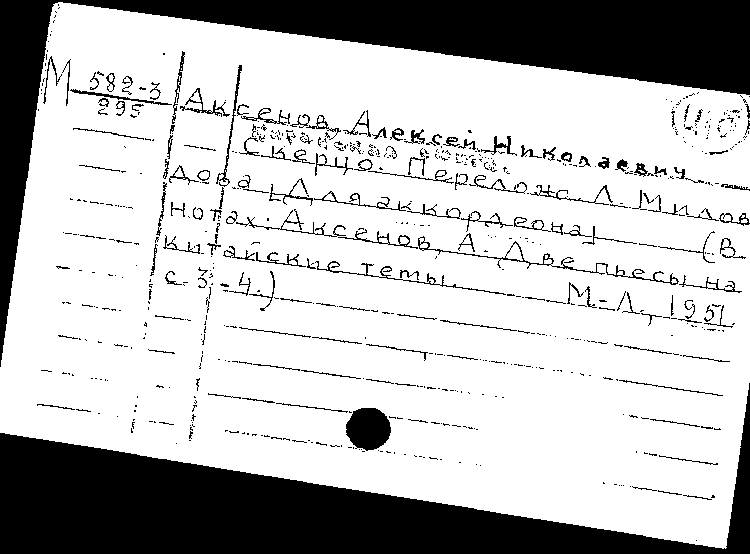 М 582-3
295
418
Аксенов, Алексей Николаевич
Скерцо. Перелож. Л. Милов
дова [Для аккордеона] (В
нотах: Аксенов, А. Две пьесы на
китайские темы. М.-Л., 1951
с. 3-4.)